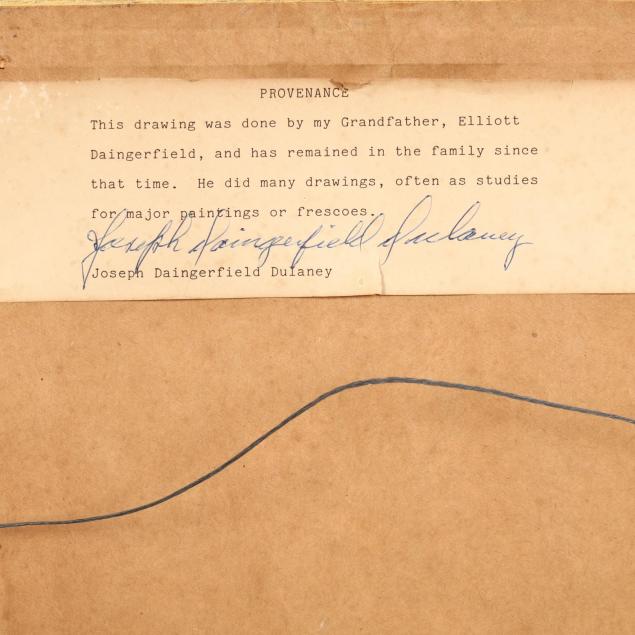 PROVENANCE
This drawing was done by my Grandfather, Elliott
Daingerfield, and has remained in the family since
that time.  He did many drawings, often as studies
for major paintings or frescoes.
Joseph Daingerfield Dulaney
Joseph Daingerfield Dulaney